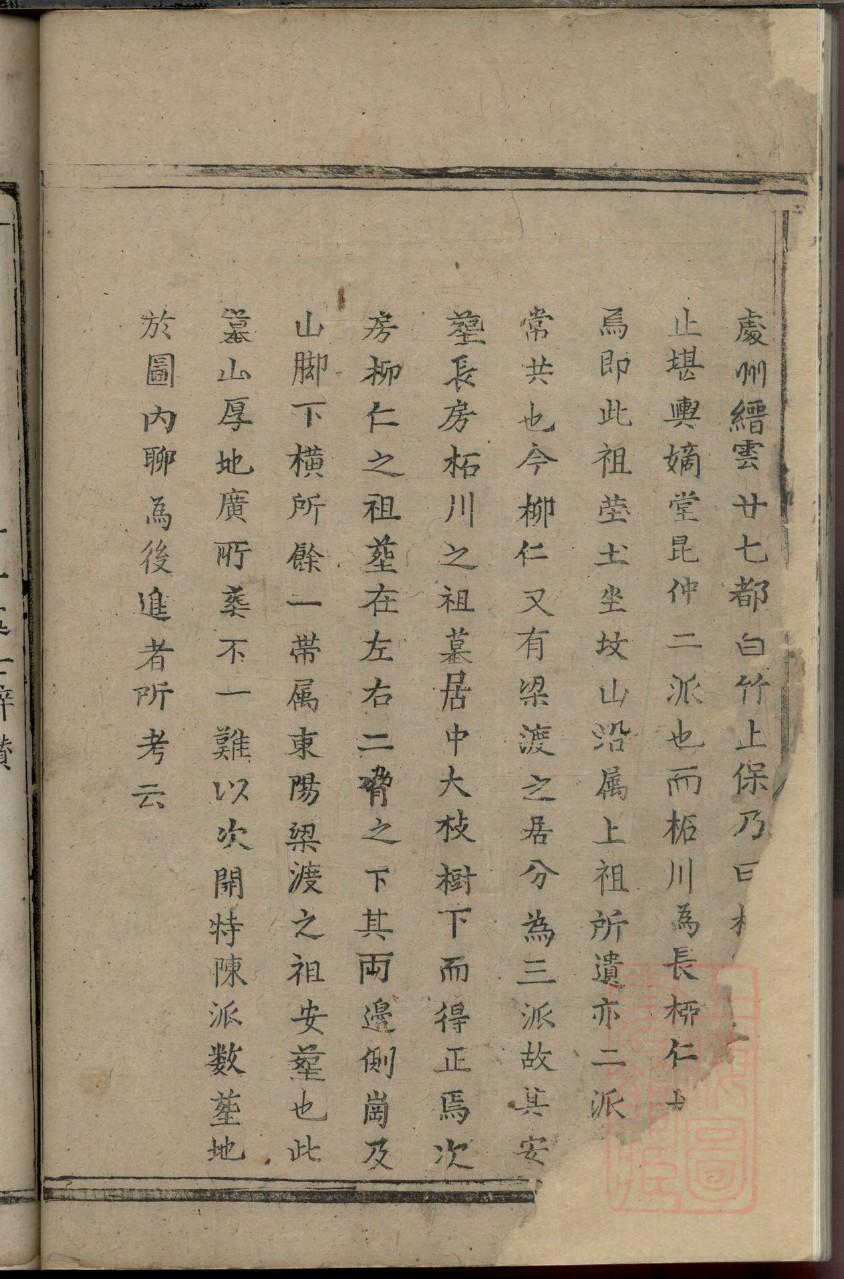 處州縉雲廿七都白竹上保乃曰
止堪輿嫡堂昆仲二派也而柘川為長柳仁
焉即此祖塋土坐坟山沿属上祖所遺亦二派
常共也今柳仁又有梁渡之居分為三派故其安
塟長房柘川之祖墓居中大枝樹下而得正焉次
房柳仁之祖塟在左右二脅之下其両邊側崗及
山脚下橫所餘一帶属東陽梁渡之祖安塟也此
墓山厚地廣所葬不一難以次開特陳派數塟地
於圖內聊為後進者所考云